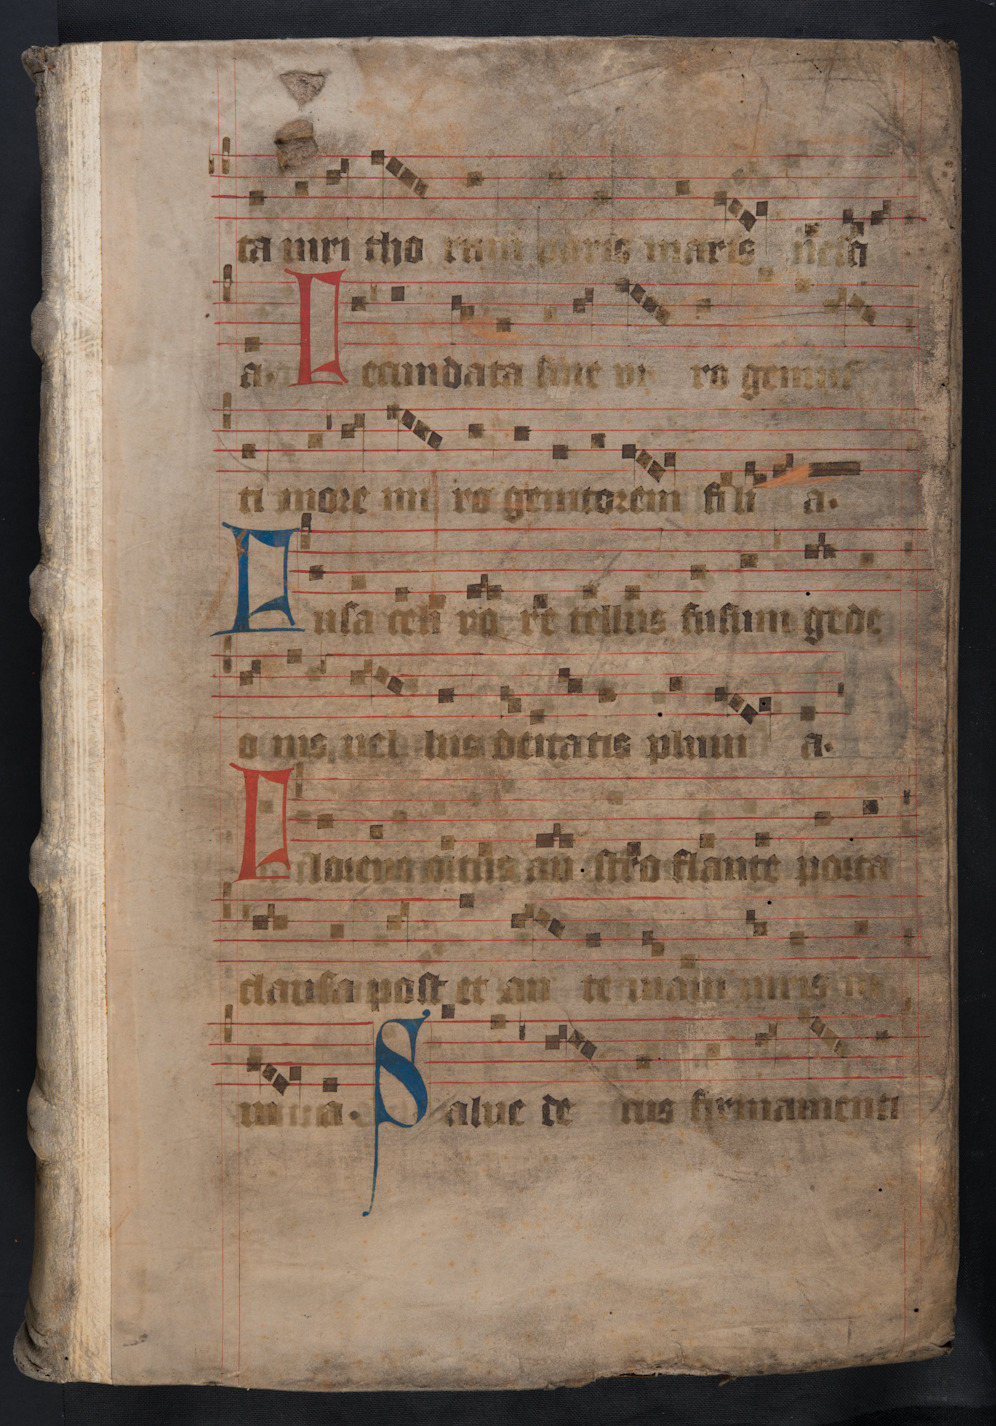 ta miri tho rum puris maris nescí
a. Fecundata sine vi ro genuis
ti more mi ro genitorem fi li a.
Fusa celi ro re tellus fusum gede
o nis uel lus deitatis pluui a.
Florem gignis au stro flante porta
clausa post et an te
uia. Salue de cus firmamenti